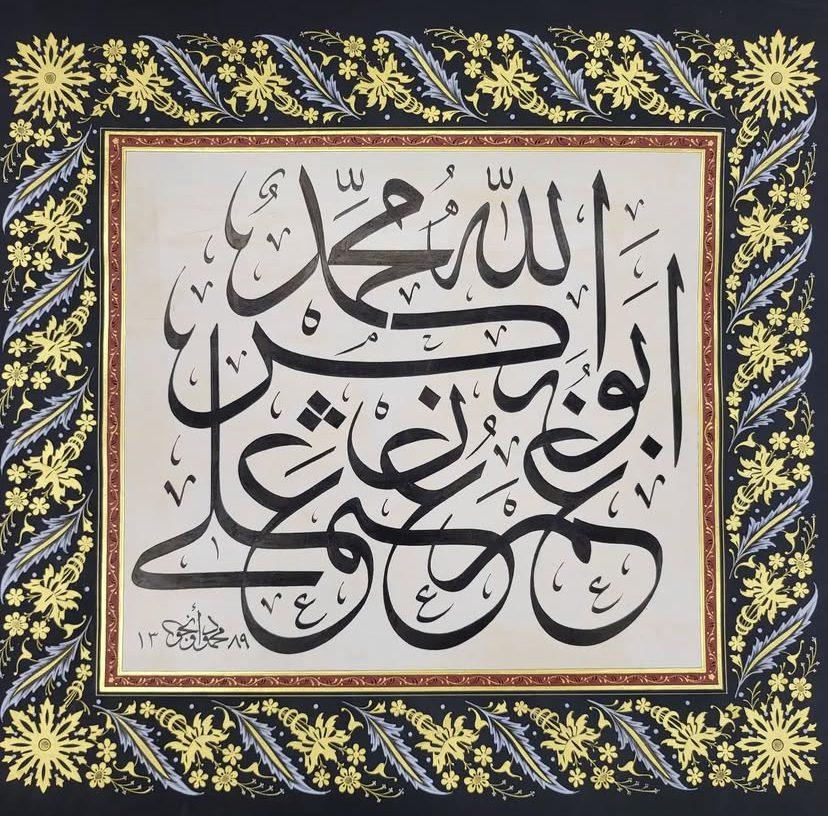 الله محمد
ابو بكر
عمر عثمان علي
محمود أونجو ١٣٨٩